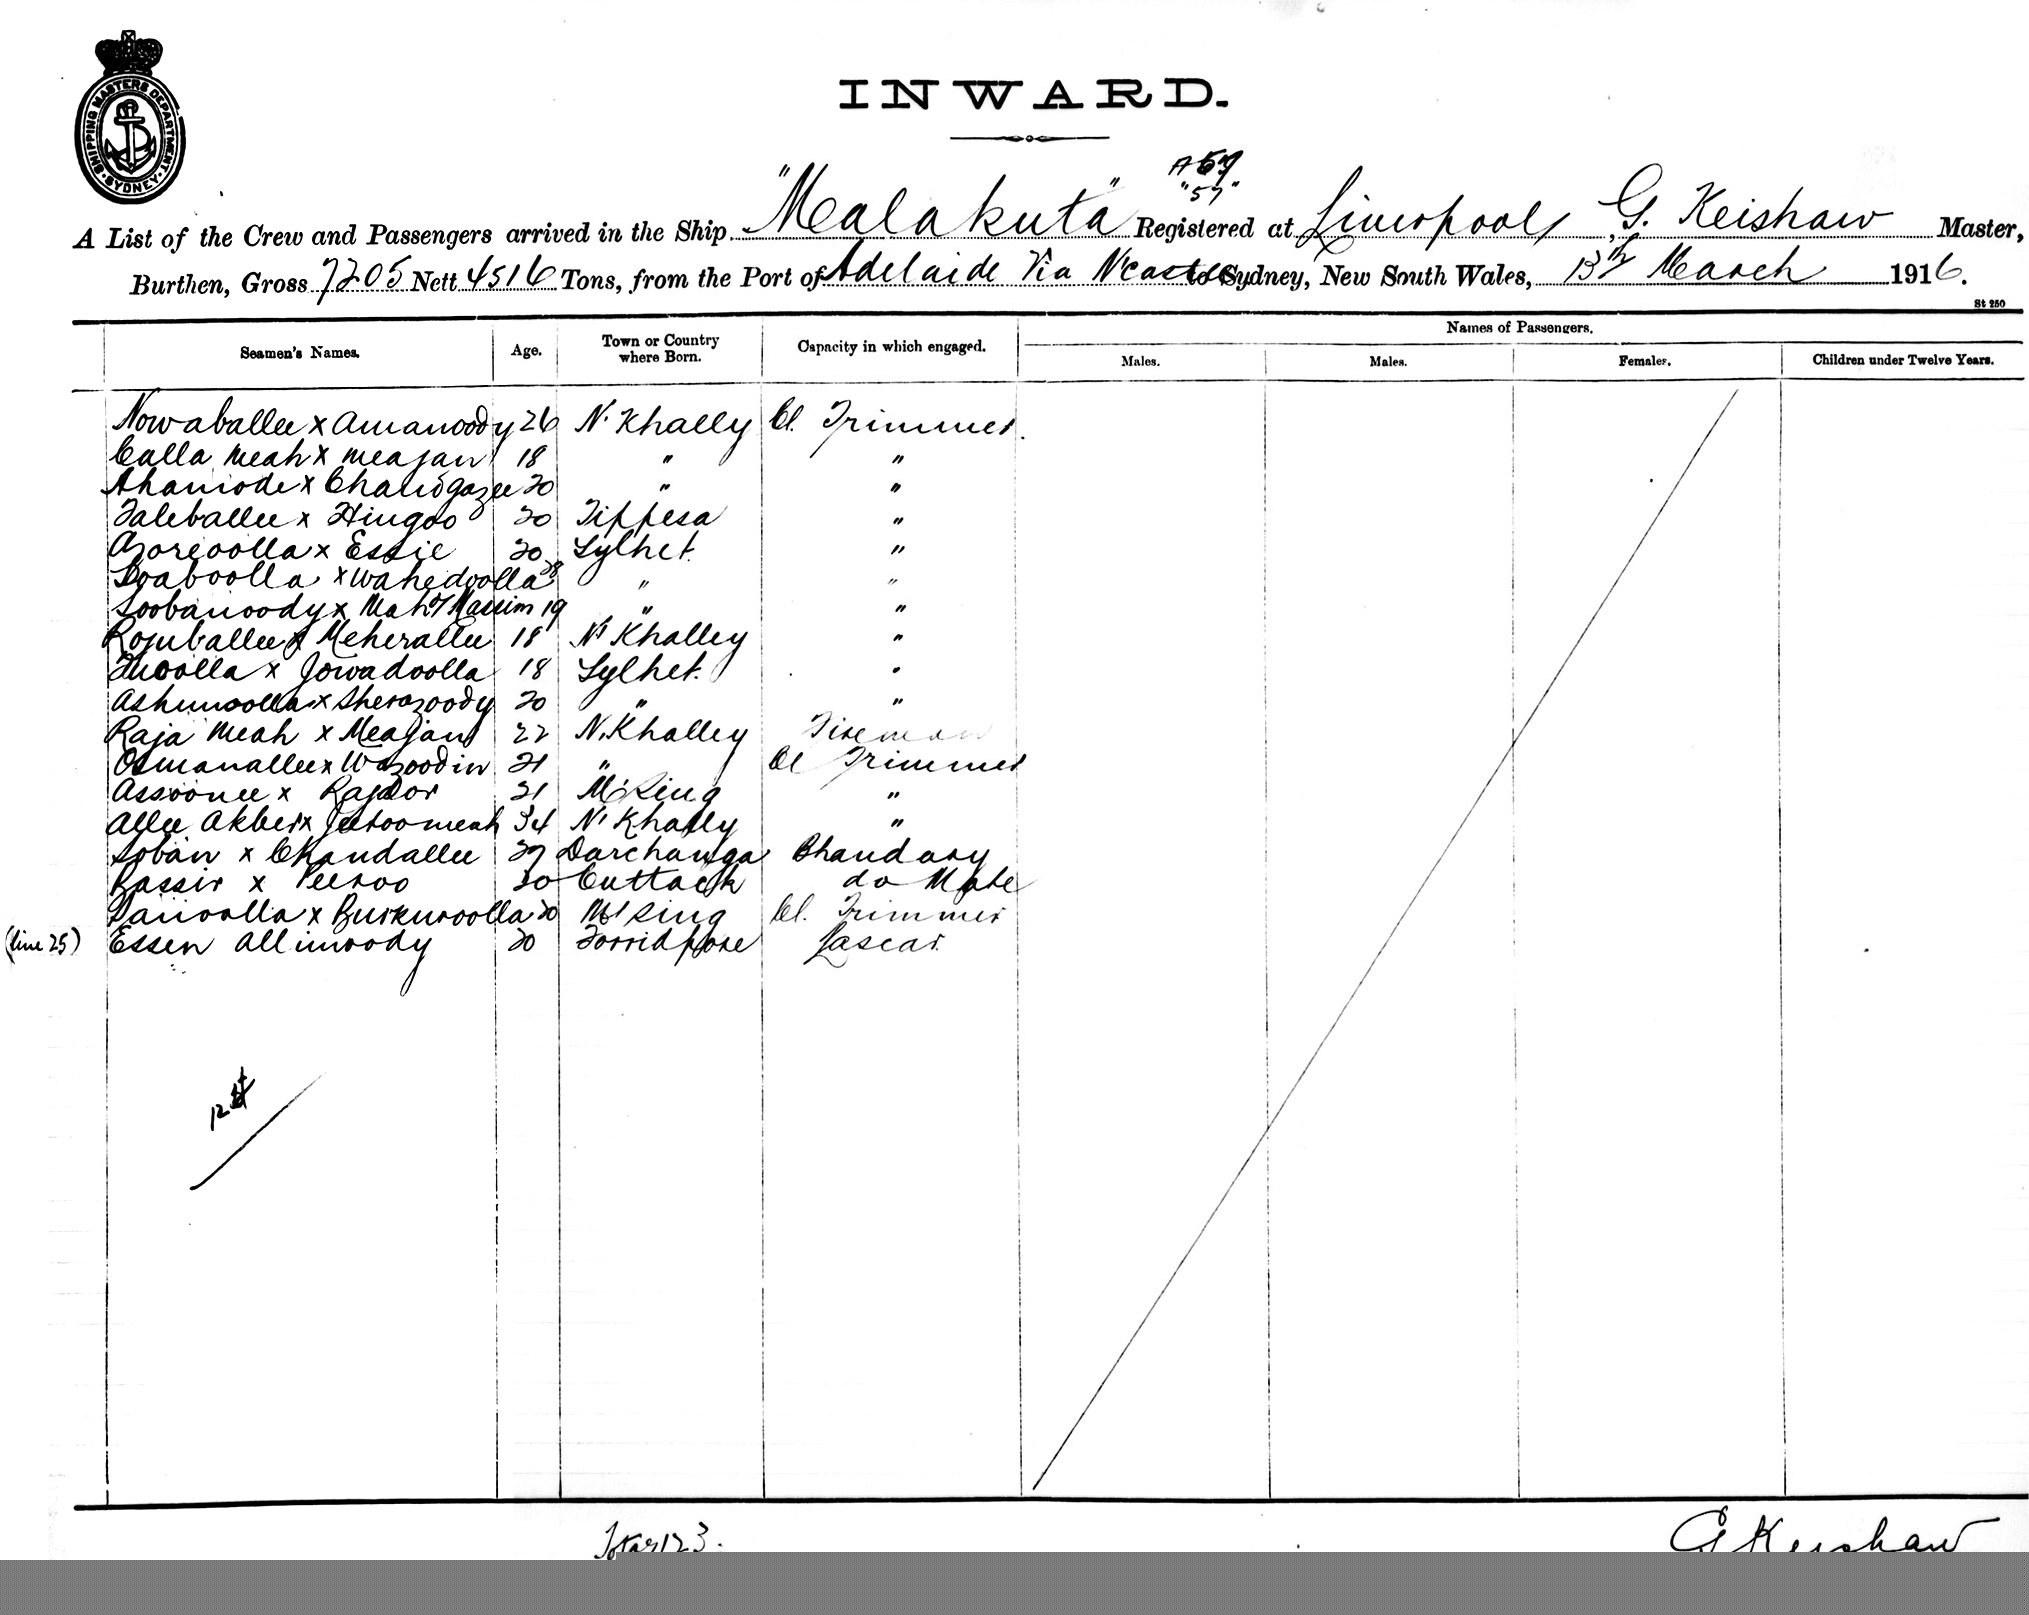 SHIPPING MASTERS DEPARTMENT. SYDNEY.
INWARD.
A 57
"57"
A List of the Crew and Passengers arrived in the Ship "Malakuta" Registered at Liverpool, G. Keishaw Master,
Burthen, Gross 7205 Nett 4516 Tons, from the Port of Adelaide Via N'castle to Sydney, New South Wales, 13th March 1916.
St 250
Seamen's Names. Age. Town or Country where Born. Capacity in which engaged. Names of Passengers.
Males. Males. Females. Children under Twelve Years.
Nowaballee x Amanoody 26 N. Khally Cl. Trimmer.
Calla Meah x Meajan 18 " "
Ahamode x Chandgazee 20 " "
Taleballee x Hingoo 20 Tippera "
Azoreoolla x Essie 20 Sylhet. "
x Wahedoolla 28 " "
Soobanoody x Mahd Massim 19 " "
Rojuballee x Meherallee 18 N. Khalley "
x Jowadoolla 18 Sylhet. "
Ashmoolla x Sherazoody 20 " "
Raja Meah x Meajan 22 N. Khalley Fireman
Osmanallee x Wazoodin 21 " Cl Trimmer
Assoonee x 21 M'Sing "
Allee Akber x Jetoomeah 34 N. Khally "
Soban x Chandallee 27 Darchanga Bhandary
Bassir x Peeroo 30 Cuttack do Mate
x Burkutoolla 20 M'Sing Cl. Trimmer
(line 25) Essen Allimoody 20 Forridpore Lascar.
12 st
Total 123.
G Kershaw